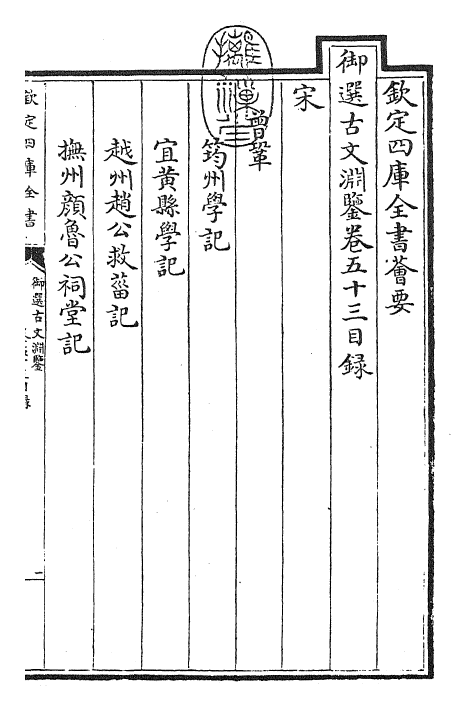 欽定四庫全書薈要
御選古文淵鑒卷五十三目録
宋
曾鞏
筠州學記
宜黄縣學記
越州趙公救菑記
撫州顔魯公祠堂記
欽定四庫全書
御選古文淵鑒